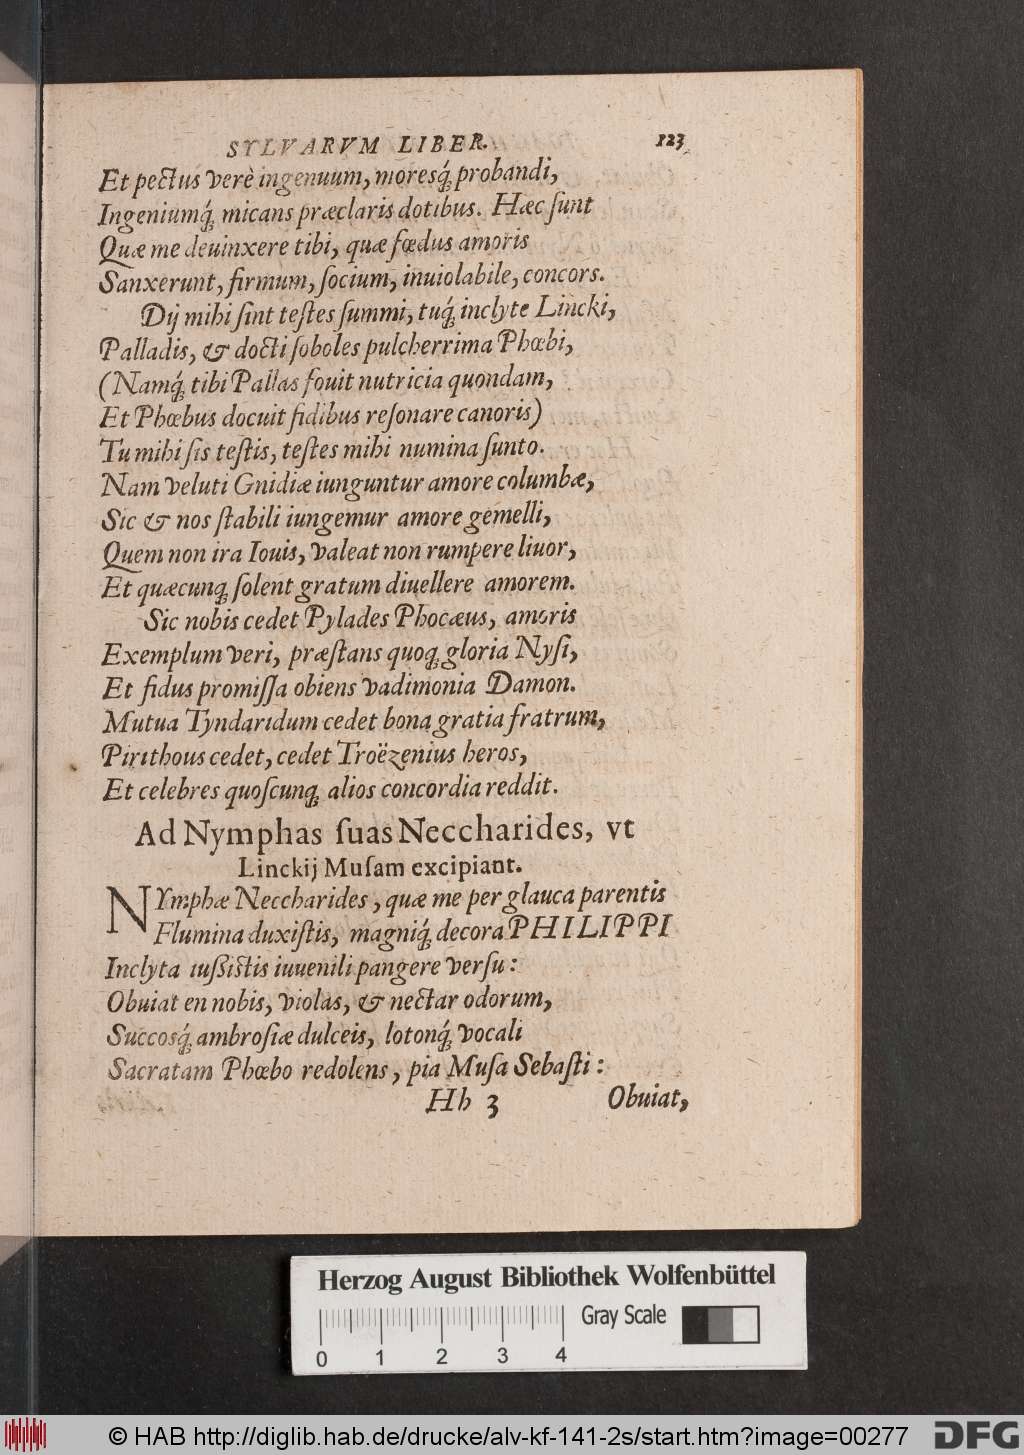 SYLVARVM LIBER. 123
Et pectus verè ingenuum, moresq́; probandi,
Ingeniumq́; micans præclaris dotibus. Hæc ſunt
Quæ me deuinxere tibi, quæ fœdus amoris
Sanxerunt, firmum, ſocium, inuiolabile, concors.
Dij mihi ſint teſtes ſummi, tuq́; inclyte Lincki,
Palladis, & docti ſoboles pulcherrima Phœbi,
(Namq́; tibi Pallas fouit nutricia quondam,
Et Phœbus docuit fidibus reſonare canoris)
Tu mihi ſis teſtis, teſtes mihi numina ſunto.
Nam veluti Gnidiæ iunguntur amore columbæ,
Sic & nos ſtabili iungemur amore gemelli,
Quem non ira Iouis, valeat non rumpere liuor,
Et quæcunq; ſolent gratum diuellere amorem.
Sic nobis cedet Pylades Phocæus, amoris
Exemplum veri, præſtans quoq; gloria Nyſi,
Et fidus promiſſa obiens vadimonia Damon.
Mutua Tyndaridum cedet bona gratia fratrum,
Pirithous cedet, cedet Troëzenius heros,
Et celebres quoſcunq; alios concordia reddit.
Ad Nymphas ſuas Neccharides, vt
Linckij Muſam excipiant.
NYmphæ Neccharides, quæ me per glauca parentis
Flumina duxiſtis, magniq́; decora PHILIPPI
Inclyta iußistis iuuenili pangere verſu:
Obuiat en nobis, violas, & nectar odorum,
Succosq́; ambroſiæ dulceis, lotonq́; vocali
Sacratam Phœbo redolens, pia Muſa Sebaſti:
Hh 3 Obuiat,
Herzog August Bibliothek Wolfenbüttel
Gray Scale
0 1 2 3 4
© HAB http://diglib.hab.de/drucke/alv-kf-141-2s/start.htm?image=00277 DFG